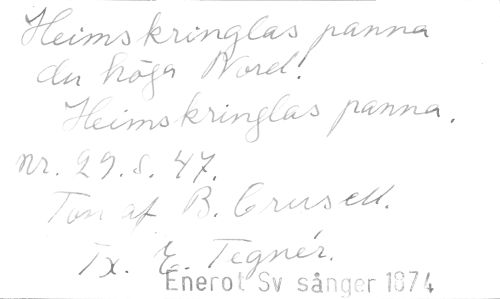 Heimskringlas panna
du höga Nord!
Heimskringlas panna.
nr. 29. s. 47.
Ton af B. Crusell.
Tx. E. Tegnér.
Enerot Sv sånger 1874